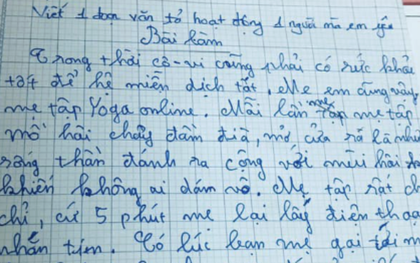 Viết 1 đoạn văn tả hoạt động 1 người mà em yêu
Bài làm
Trong thời cô-vi cũng phải có sức khỏe
tốt để hệ miễn dịch tốt. Mẹ em cũng vậy,
mẹ tập Yoga online. Mỗi lần mẹ tập
mồ hôi chảy đầm đìa, mở cửa ra là như
rằng thần đanh ra cộng với mùi hôi
khiến không ai dám vô. Mẹ tập rất
chỉ, cứ 5 phút mẹ lại lấy điện thoạ
nhắn tin. Có lúc bạn mẹ gọi tới m